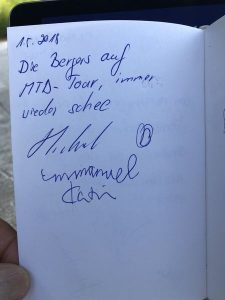 Die Bergers auf
MTB-Tour, immer
wieder schee
Michel
Emmanuel